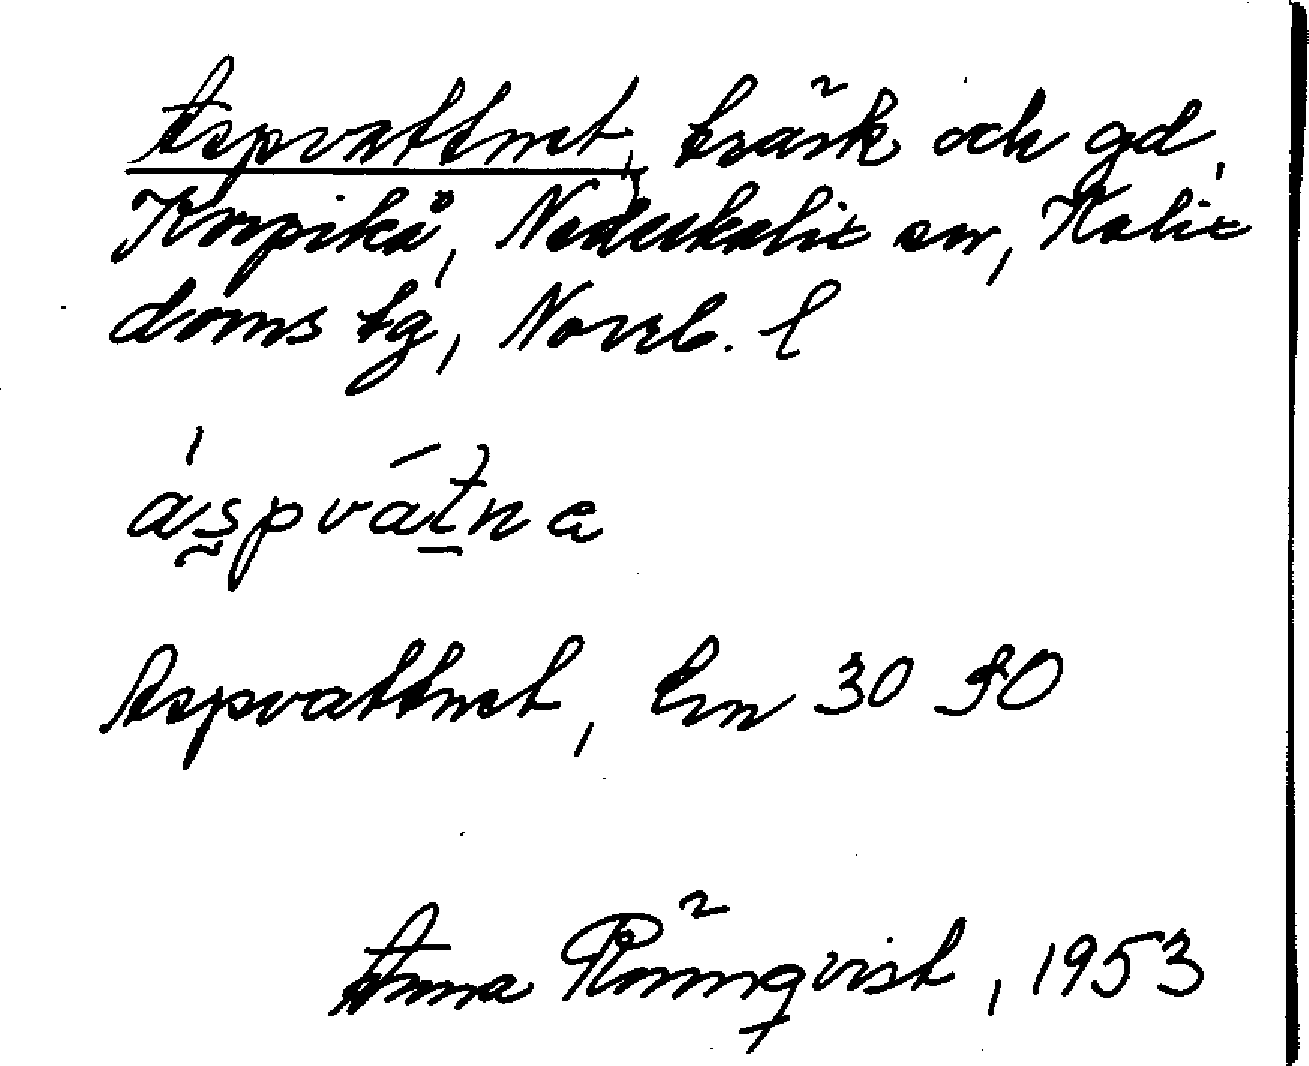 Aspvattnet, träsk och gd,
Korpikå, Nederkalix sn, Kalix
doms tg, Norrb. l
áspvátna
Aspvattnet, Em 30 90
Anna Rönnqvist, 1953